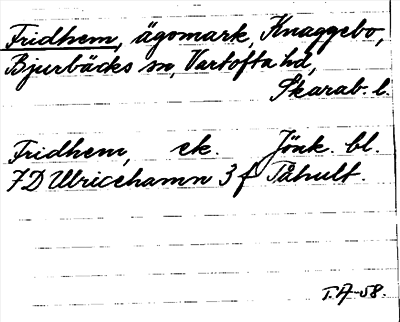 Fridhem, ägomark, Knaggebo,
Bjurbäcks sn, Vartofta hd,
Skarab. l.
Fridhem, ek. Jönk. bl.
7D Ulricehamn 3 f Påhult.
T.A-58.